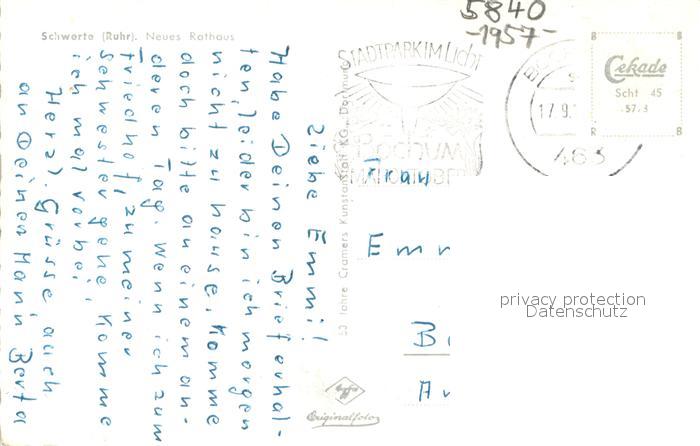 5840
-1957-
Schwerte (Ruhr). Neues Rathaus
Liebe Emmi!
Habe Deinen Brief erhal-
ten, leider bin ich morgen
nicht zu hause. Komme
doch bitte an einem an-
deren Tag. Wenn ich zum
Friedhof, zu meiner
Schwester gehe, komme
ich mal vorbei,
Herzl. Grüsse, auch
an Deinen Mann Berta
50 Jahre Cramers Kunstanstalt KG., Dortmund
STADTPARK IM Licht
Bochum
17.9.
463
B B
Cekade
Scht 45
57/3
B B
Frau
Emm
B
A
privacy protection
Datenschutz
Agfa
Originalfoto